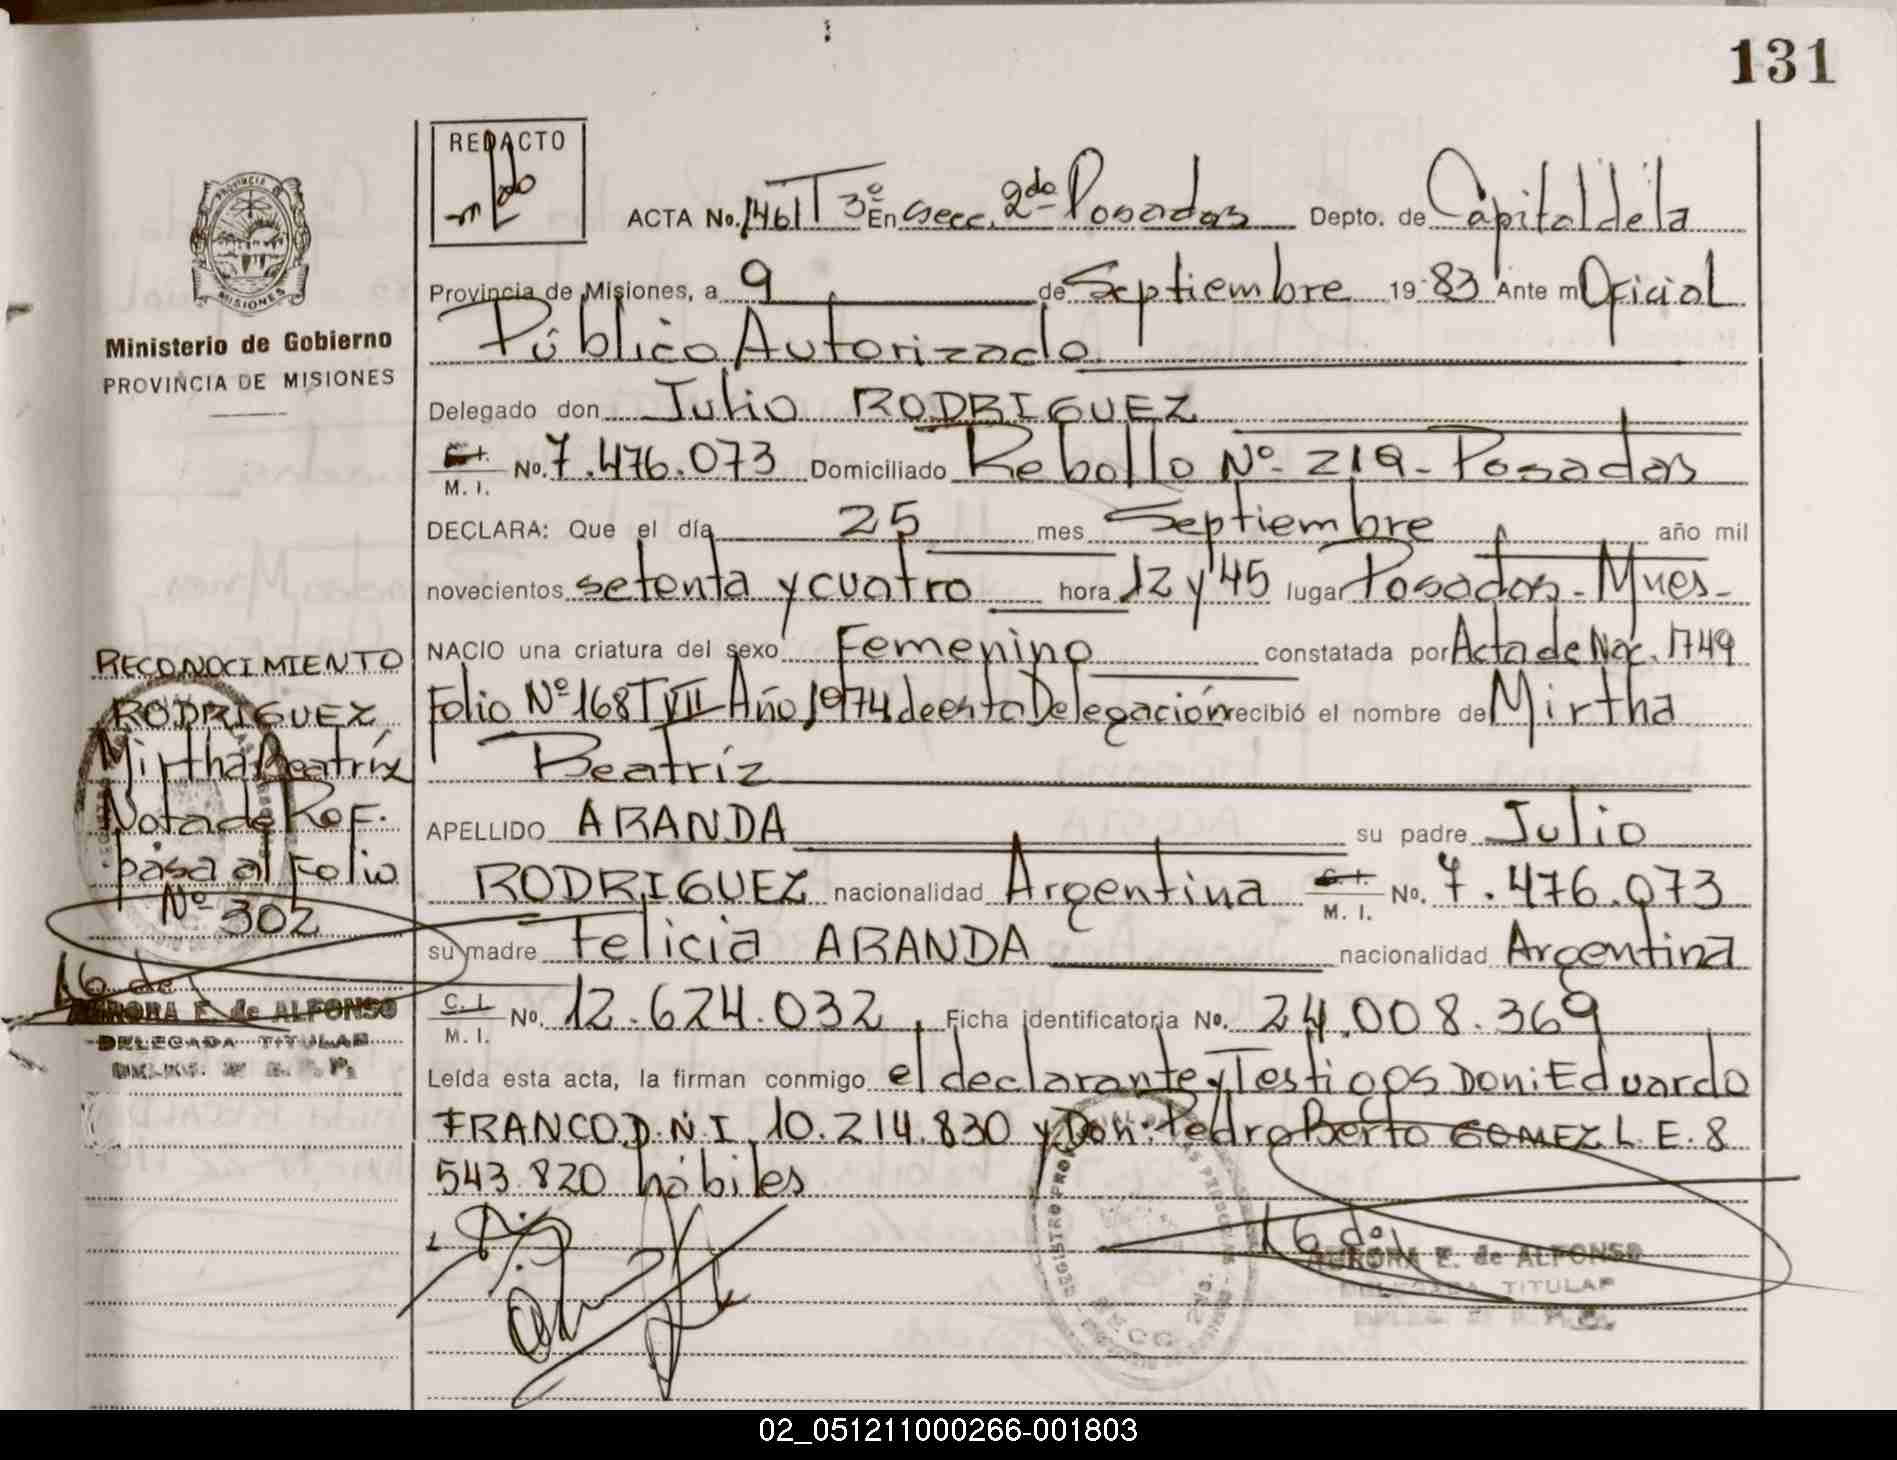 131
REDACTO
ACTA No. 1461 T 3º En secc. 2da Posadas Depto. de Capital de la
Provincia de Misiones, a 9 de Septiembre 19 83 Ante mí Oficial
Público Autorizado
Delegado don Julio RODRIGUEZ
C.I. M. I. No. 7.476.073 Domiciliado Rebollo Nº 219 - Posadas
DECLARA: Que el día 25 mes Septiembre año mil
novecientos setenta y cuatro hora 12 y 45 lugar Posadas - Mnes -
NACIO una criatura del sexo Femenino constatada por Acta de Nac. 1749
Folio Nº 168 T VII Año 1974 de esta Delegación recibió el nombre de Mirtha
Beatríz
APELLIDO ARANDA su padre Julio
RODRIGUEZ nacionalidad Argentina C.I. M. I. No. 7.476.073
su madre Felicia ARANDA nacionalidad Argentina
C.I. M. I. No. 12.624.032 Ficha identificatoria No. 24.008.369
Leída esta acta, la firman conmigo el declarante y Testigos Don: Eduardo
FRANCO D.N.I. 10.214.830 y Don: Pedro Berto GOMEZ L.E. 8
543.820 hábiles
AURORA E. de ALFONSO
DELEGADA TITULAR
PROVINCIA
MISIONES
Ministerio de Gobierno
PROVINCIA DE MISIONES
RECONOCIMIENTO
RODRIGUEZ
Mirtha Beatríz
Nota de Ref.
pasa al Folio
Nº 302
AURORA E. de ALFONSO
DELEGADA TITULAR
02_051211000266-001803